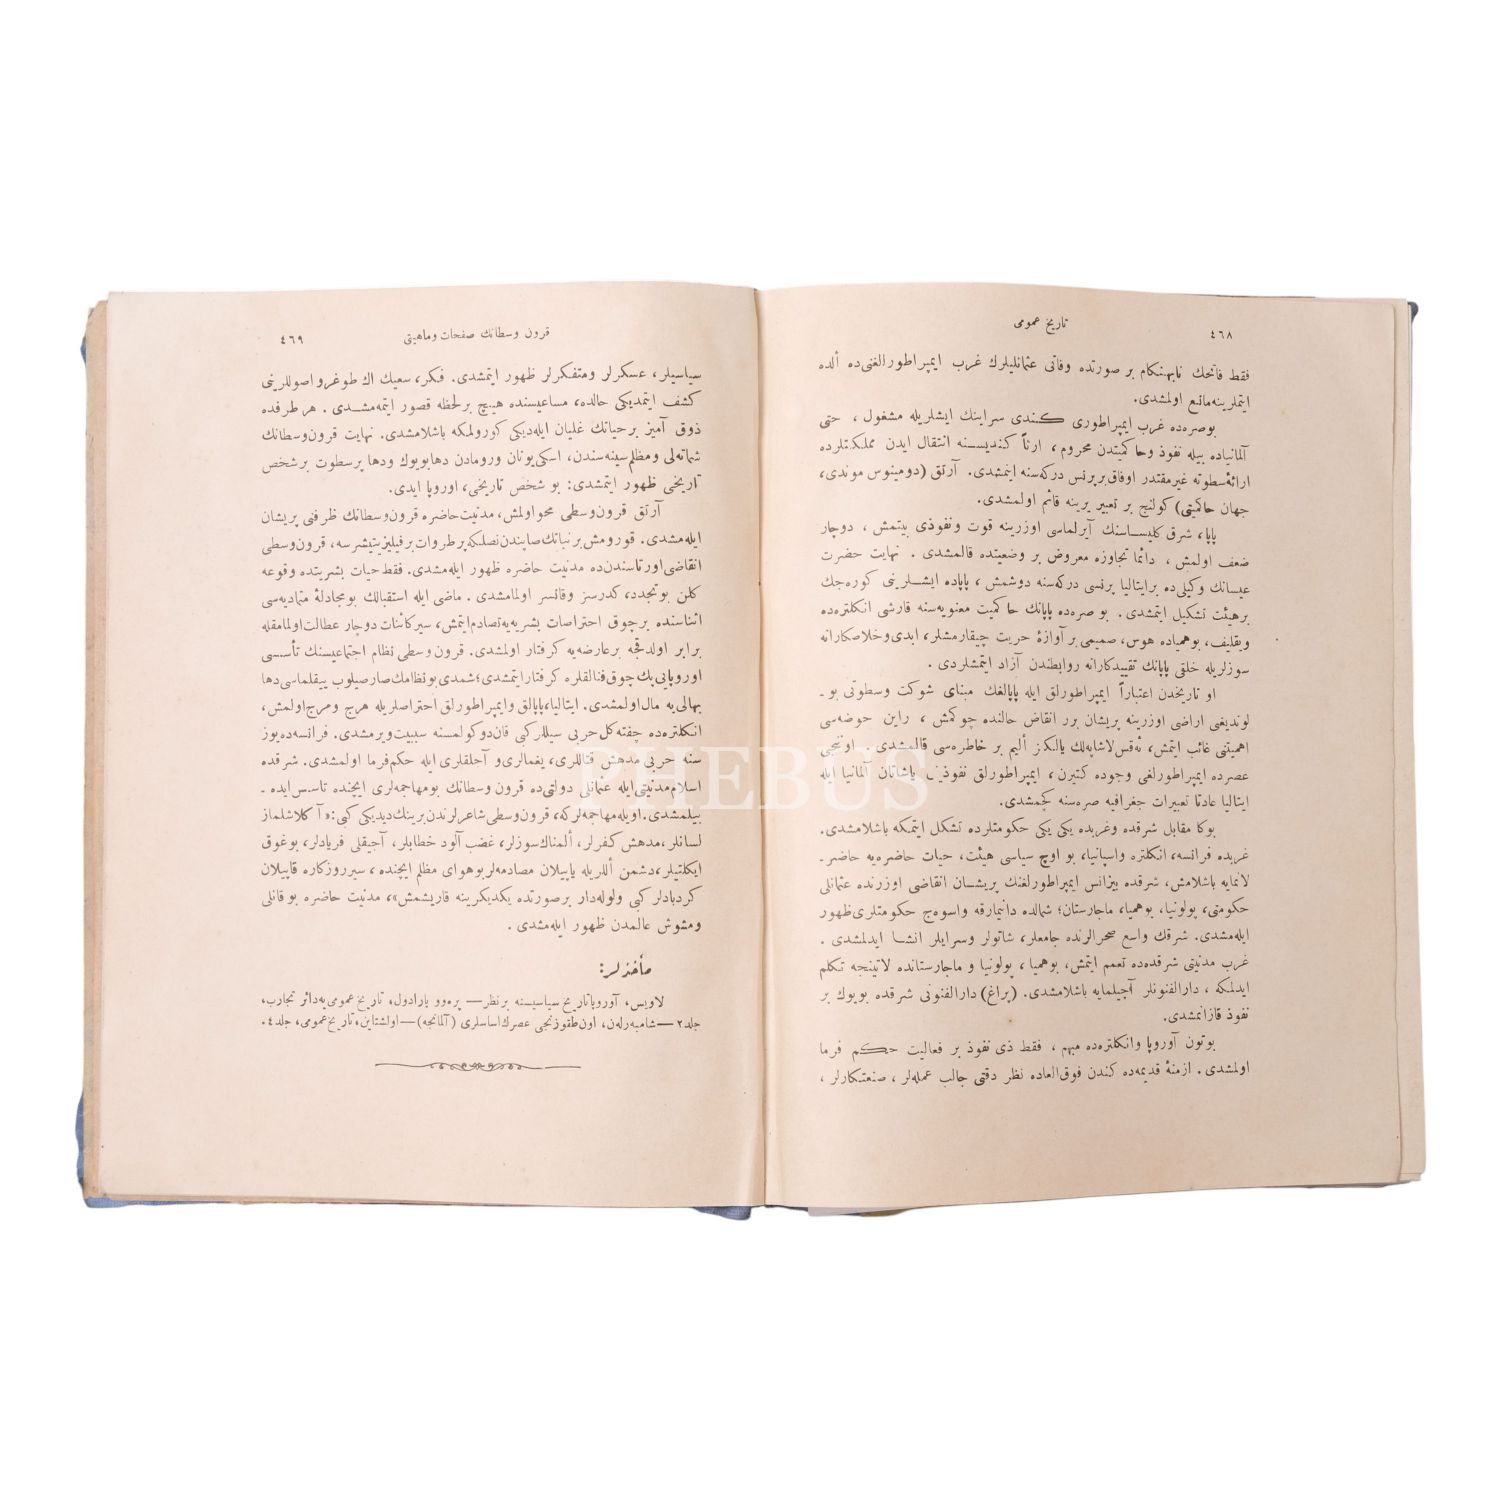 ٤٦٨
تاريخ عمومى
فقط فاتحك نابهنكام بر صورتده وفاتى عثمانليلرك غرب ايمپراطورالغنى‌ده ألده
ايتملرينه مانع اولمشدى.
بوصره‌ده غرب ايمپراطورى كندى سراينك ايشلريله مشغول ، حتى
آلمانياده بيله نفوذ وحاكميتدن محروم ، ارثاً كنديسنه انتقال ايدن مملكتلرده
ارائهٔ سطوته غيرمقتدر اوفاق برپرنس دركه‌سنه اينمشدى. آرتق (دومينوس موندى،
جهان حاكميتى) كولنج بر تعبير يرينه قائم اولمشدى.
پاپا، شرق كليساسنك آيرلماسى اوزرينه قوت ونفوذى بيتمش ، دوچار
ضعف اولمش ، دائما تجاوزه معروض بر وضعيتده قالمشدى . نهايت حضرت
عيسانك وكيلى‌ده برايتاليا پرنسى دركه‌سنه دوشمش ، پاپاده ايشلرينى كوره‌جك
برهيئت تشكيل ايتمشدى . بو صره‌ده پاپانك حاكميت معنويه‌سنه قارشى انكلتره‌ده
ويقليف، بوهمياده هوس، صميمى بر آوازهٔ حريت چيقارمشلر، ابدى وخلاصكارانه
سوزلريله خلقى پاپانك تقييدكارانه روابطندن آزاد ايتمشلردى .
او تاريخدن اعتباراً ايمپراطورلق ايله پاپالغك مبناى شوكت وسطوتى بو ـ
لونديغى اراضى اوزرينه پريشان برر انقاض حالنده چوكمش ، راين حوضه‌سى
اهميتنى غائب ايتمش، نه‌قس‌لاشاپه‌لك يالكز أليم بر خاطره‌سى قالمشدى . اوننجى
عصرده ايمپراطورلغى وجوده كتيرن، ايمپراطورلق نفوذيله ياشاتان آلمانيا ايله
ايتاليا عادتا تعبيرات جغرافيه صره‌سنه كچمشدى.
بوكا مقابل شرقده وغربده يكى يكى حكومتلرده تشكل ايتمكه باشلامشدى.
غربده فرانسه، انكلتره واسپانيا، بو اوچ سياسى هيئت، حيات حاضره‌يه حاضر ـ
لانمايه باشلامش، شرقده بيزانس ايمپراطورلغنك پريشان انقاضى اوزرنده عثمانلى
حكومتى، پولونيا، بوهميا، ماجارستان؛ شمالده دانيمارقه واسوه‌ج حكومتلرى ظهور
ايله‌مشدى. شرقك واسع صحرالرنده جامعلر، شاتولر وسرايلر انشا ايدلمشدى .
غرب مدنيتى شرقده‌ده تعمم ايتمش، بوهميا ، پولونيا و ماجارستانده لاتينجه تكلم
ايدلمكه ، دارالفنونلر آچيلمايه باشلامشدى. (پراغ) دارالفنونى شرقده بويوك بر
نفوذ قازانمشدى.
بوتون آوروپا وانكلتره‌ده مبهم ، فقط ذى نفوذ بر فعاليت حكم فرما
اولمشدى . ازمنهٔ قديمه‌ده كندن فوق‌العاده نظر دقتى جالب عمله‌لر ، صنعتكارلر ،
قرون وسطانك صفحات وماهيتى
٤٦٩
سياسيلر، عسكرلر ومتفكرلر ظهور ايتمشدى. فكر، سعيك اك طوغرو اصوللرينى
كشف ايتمديكى حالده، مساعيسنده هيچ بر لحظه قصور ايتمه‌مشدى . هر طرفده
ذوق آميز بر حياتك غليان ايله‌ديكى كورولمكه باشلامشدى. نهايت قرون وسطانك
شماته‌لى ومظلم سينه‌سندن، اسكى يونان ورومادن دها بويوك ودها پر سطوت بر شخص
تاريخى ظهور ايتمشدى: بو شخص تاريخى، اوروپا ايدى.
آرتق قرون وسطى محو اولمش، مدنيت حاضره قرون وسطانك ظرفنى پريشان
ايله‌مشدى. قورومش بر نباتك صاپندن نصلكه پر طروات بر فيليز يتيشرسه، قرون وسطى
انقاضى اورتاسندن‌ده مدنيت حاضره ظهور ايله‌مشدى. فقط حيات بشريتده وقوعه
كلن بو تجدد، كدرسز وقانسز اولمامشدى . ماضى ايله استقبالك بو مجادلهٔ متماديه‌سى
اثناسنده بر چوق احتراصات بشريه‌يه تصادم ايتمش، سير كائنات دوچار عطالت اولمامقله
برابر اولدقجه بر عارضه‌يه كرفتار اولمشدى. قرون وسطى نظام اجتماعيسنك تأسسى
اوروپايى پك چوق فنالقلره كرفتار ايتمشدى؛ شمدى بو نظامك صارصيلوب ييقلماسى دها
بهالى‌يه مال اولمشدى. ايتاليا، پاپالق وايمپراطورلق احتراصلريله هرج ومرج اولمش،
انكلتره‌ده چفته كل حربى سيللر كبى قان دوكولمسنه سببيت ويرمشدى. فرانسه‌ده يوز
سنه حربى مدهش قتاللرى، يغمالرى و آجلقلرى ايله حكم‌فرما اولمشدى. شرقده
اسلام مدنيتى ايله عثمانلى دولتى‌ده قرون وسطانك بو مهاجمه‌لرى ايچنده تأسس ايده ـ
بيلمشدى. اويله مهاجمه‌لركه، قرون وسطى شاعرلرندن برينك ديديكى كبى: «آ كلاشلماز
لسانلر، مدهش كفرلر، ألمناك سوزلر، غضب آلود خطابلر، آجيقلى فريادلر، بوغوق
ايكلتيلر، دشمن أللريله ياپيلان مصادمه‌لر بو هواى مظلم ايچنده ، سير روزكاره قاپيلان
كردبادلر كبى ولوله‌دار بر صورتده يكديكرينه قاريشمش»، مدنيت حاضره بو قانلى
ومشوش عالمدن ظهور ايله‌مشدى .
مأخذلر:
لاويس، آوروپا تاريخ سياسيسنه بر نظر — پره‌وو پارادول، تاريخ عمومى‌يه دائر تجارب،
جلد ٢ — شامبه‌رله‌ن، اون طقوزنجى عصرك اساسلرى (آلمانجه) — اولشتاين، تاريخ عمومى، جلد ٤.
PHEBUS